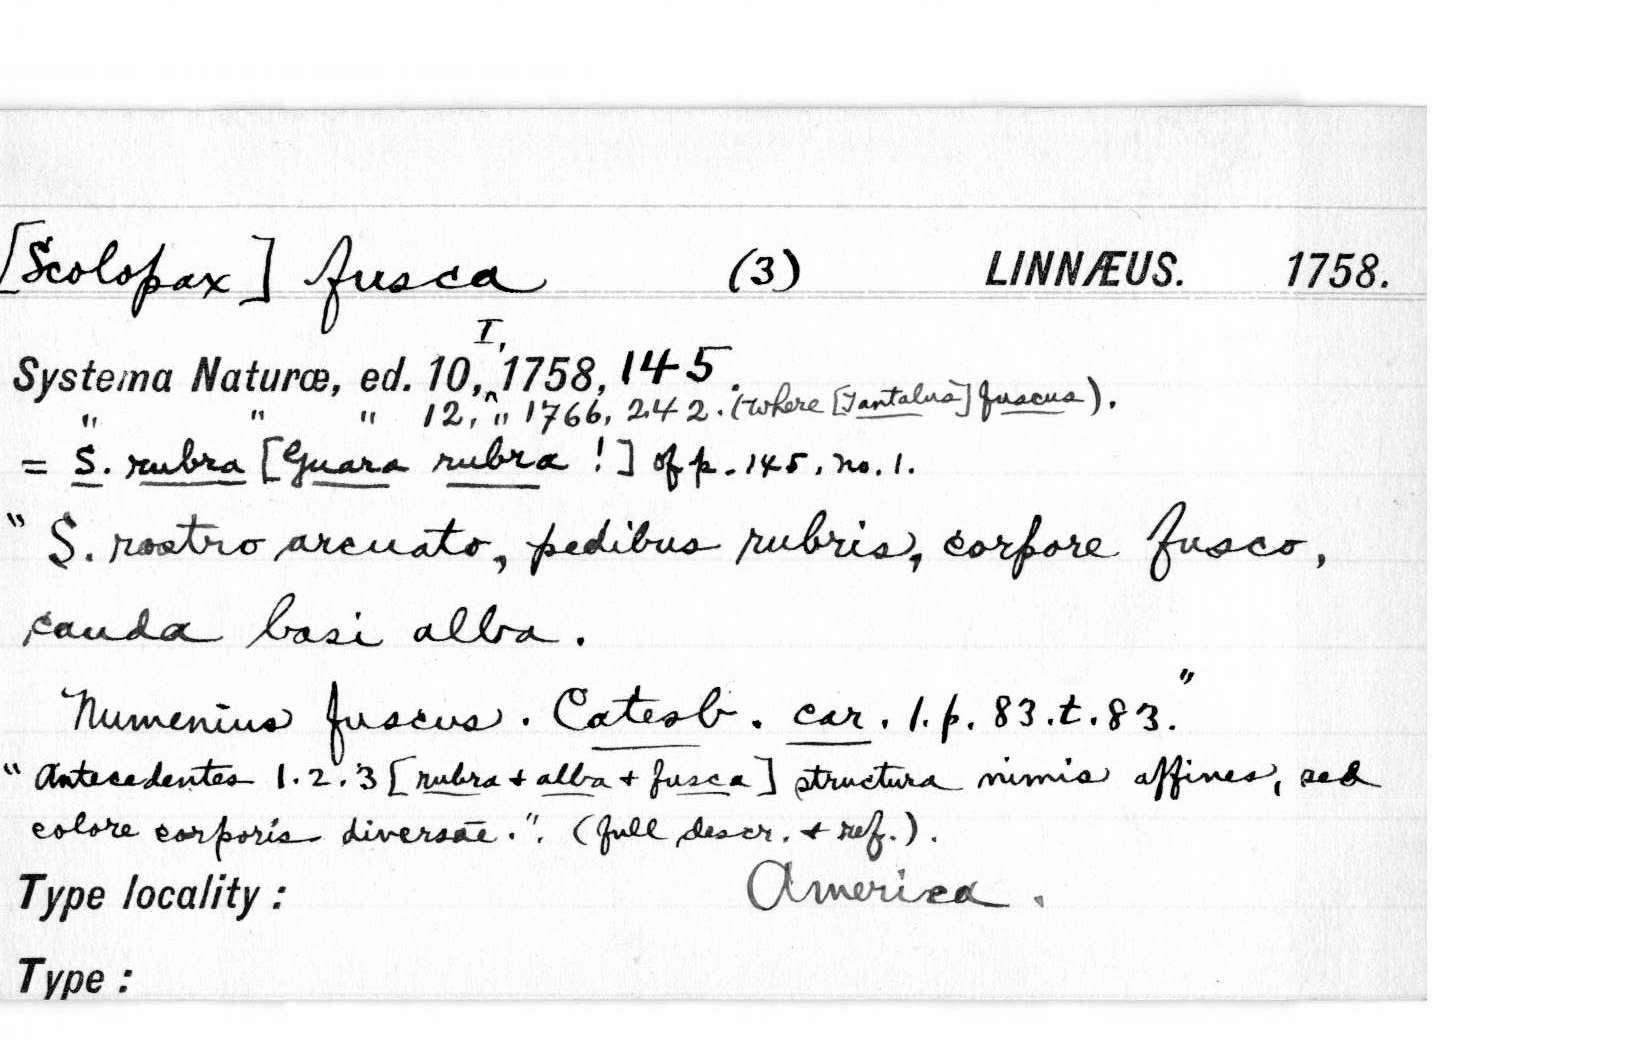 [Scolopax] fusca (3) LINNÆUS. 1758.
Systema Naturæ, ed. 10, I, 1758, 145.
" " " 12, " 1766, 242. (where [Tantalus] fuscus).
= S. rubra [Guara rubra !] of p. 145, no. 1.
"S. rostro arcuato, pedibus rubris, corpore fusco,
cauda basi alba.
Numenius fuscus. Catesb. car. 1. p. 83. t. 83."
"Antecedentes 1. 2. 3 [rubra + alba + fusca] structura nimis affines, sed
colore corporis diversæ.". (full descr. + ref.).
Type locality: America.
Type: